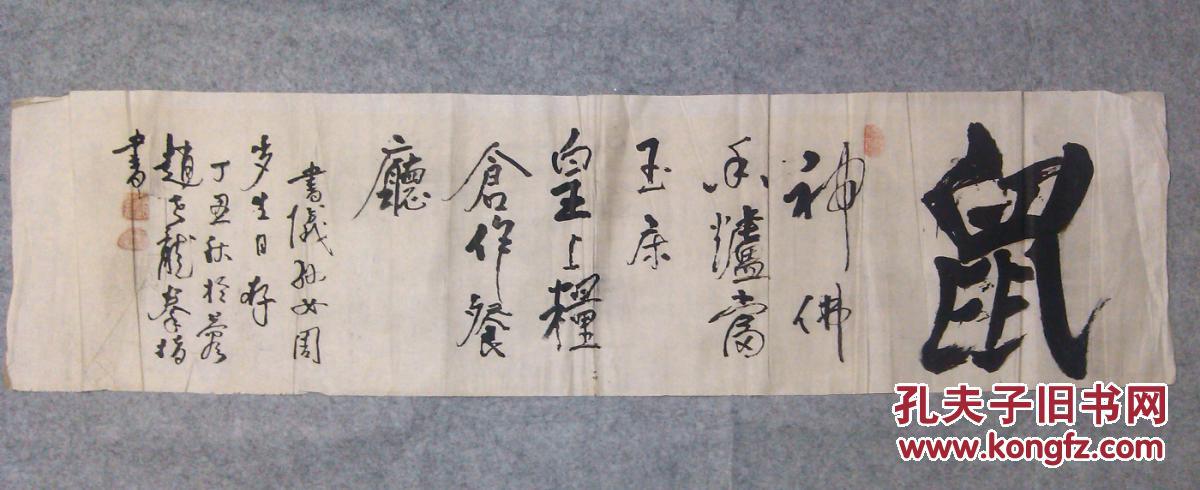 鼠
神佛
香爐當
玉床
皇上糧
倉作餐
廳
書儀孫女周
岁生日存
丁丑秋於
趙老龍拳指
書
孔夫子旧书网
www.kongfz.com